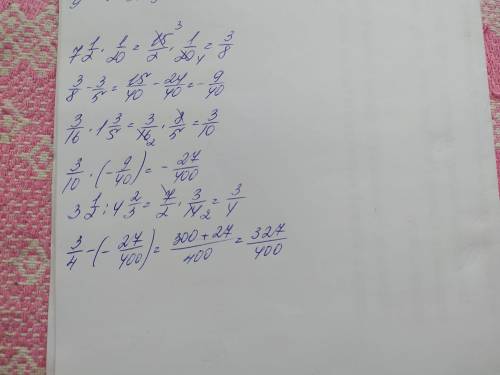 7 1/2 · 1/20 = 15/2 · 1/20 = 3/8
3/8 - 3/5 = 15/40 - 24/40 = - 9/40
3/16 · 1 3/5 = 3/16 · 8/5 = 3/10
3/10 · (- 9/40) = - 27/400
3 1/2 : 4 2/3 = 7/2 · 3/14 = 3/4
3/4 - (- 27/400) = 300 + 27/400 = 327/400